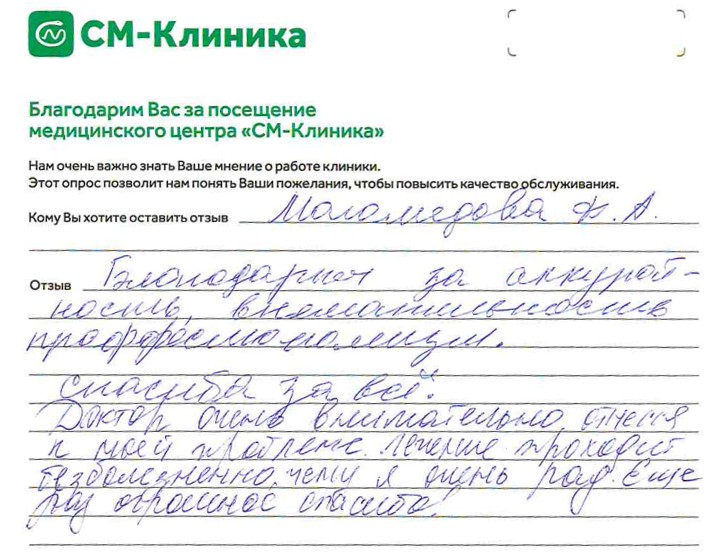 СМ-Клиника
Благодарим Вас за посещение
медицинского центра «СМ-Клиника»
Нам очень важно знать Ваше мнение о работе клиники.
Этот опрос позволит нам понять Ваши пожелания, чтобы повысить качество обслуживания.
Кому Вы хотите оставить отзыв Магомедова А.
Отзыв за аккурат-
ность, внимательность
спасиба за всё.
Доктор очень внимательно отнесся
к моей проблеме. лечение проходит
безболезненно, чему я очень рад. Еще
раз огромное спасибо.